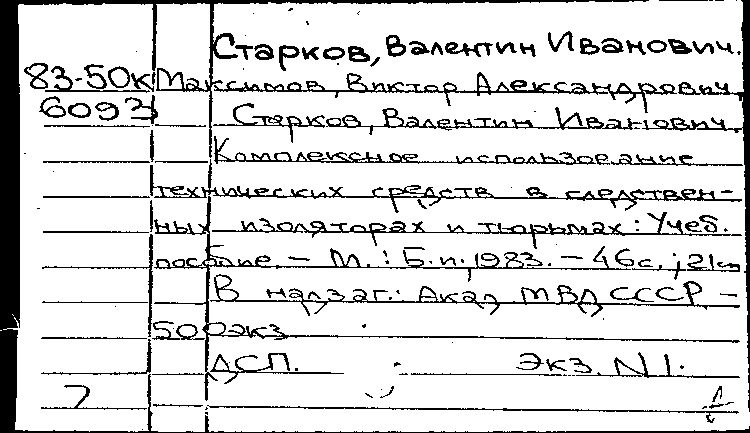 Старков, Валентин Иванович.
83-50к Максимов, Виктор Александрович,
6093 Старков, Валентин Иванович.
Комплексное использование
технических средств в следствен-
ных изоляторах и тюрьмах: Учеб.
пособие. – М.: Б.и., 1983. – 46с.; 21см
В надзаг.: Акад МВД СССР –
500экз
ДСП. Экз. N1.